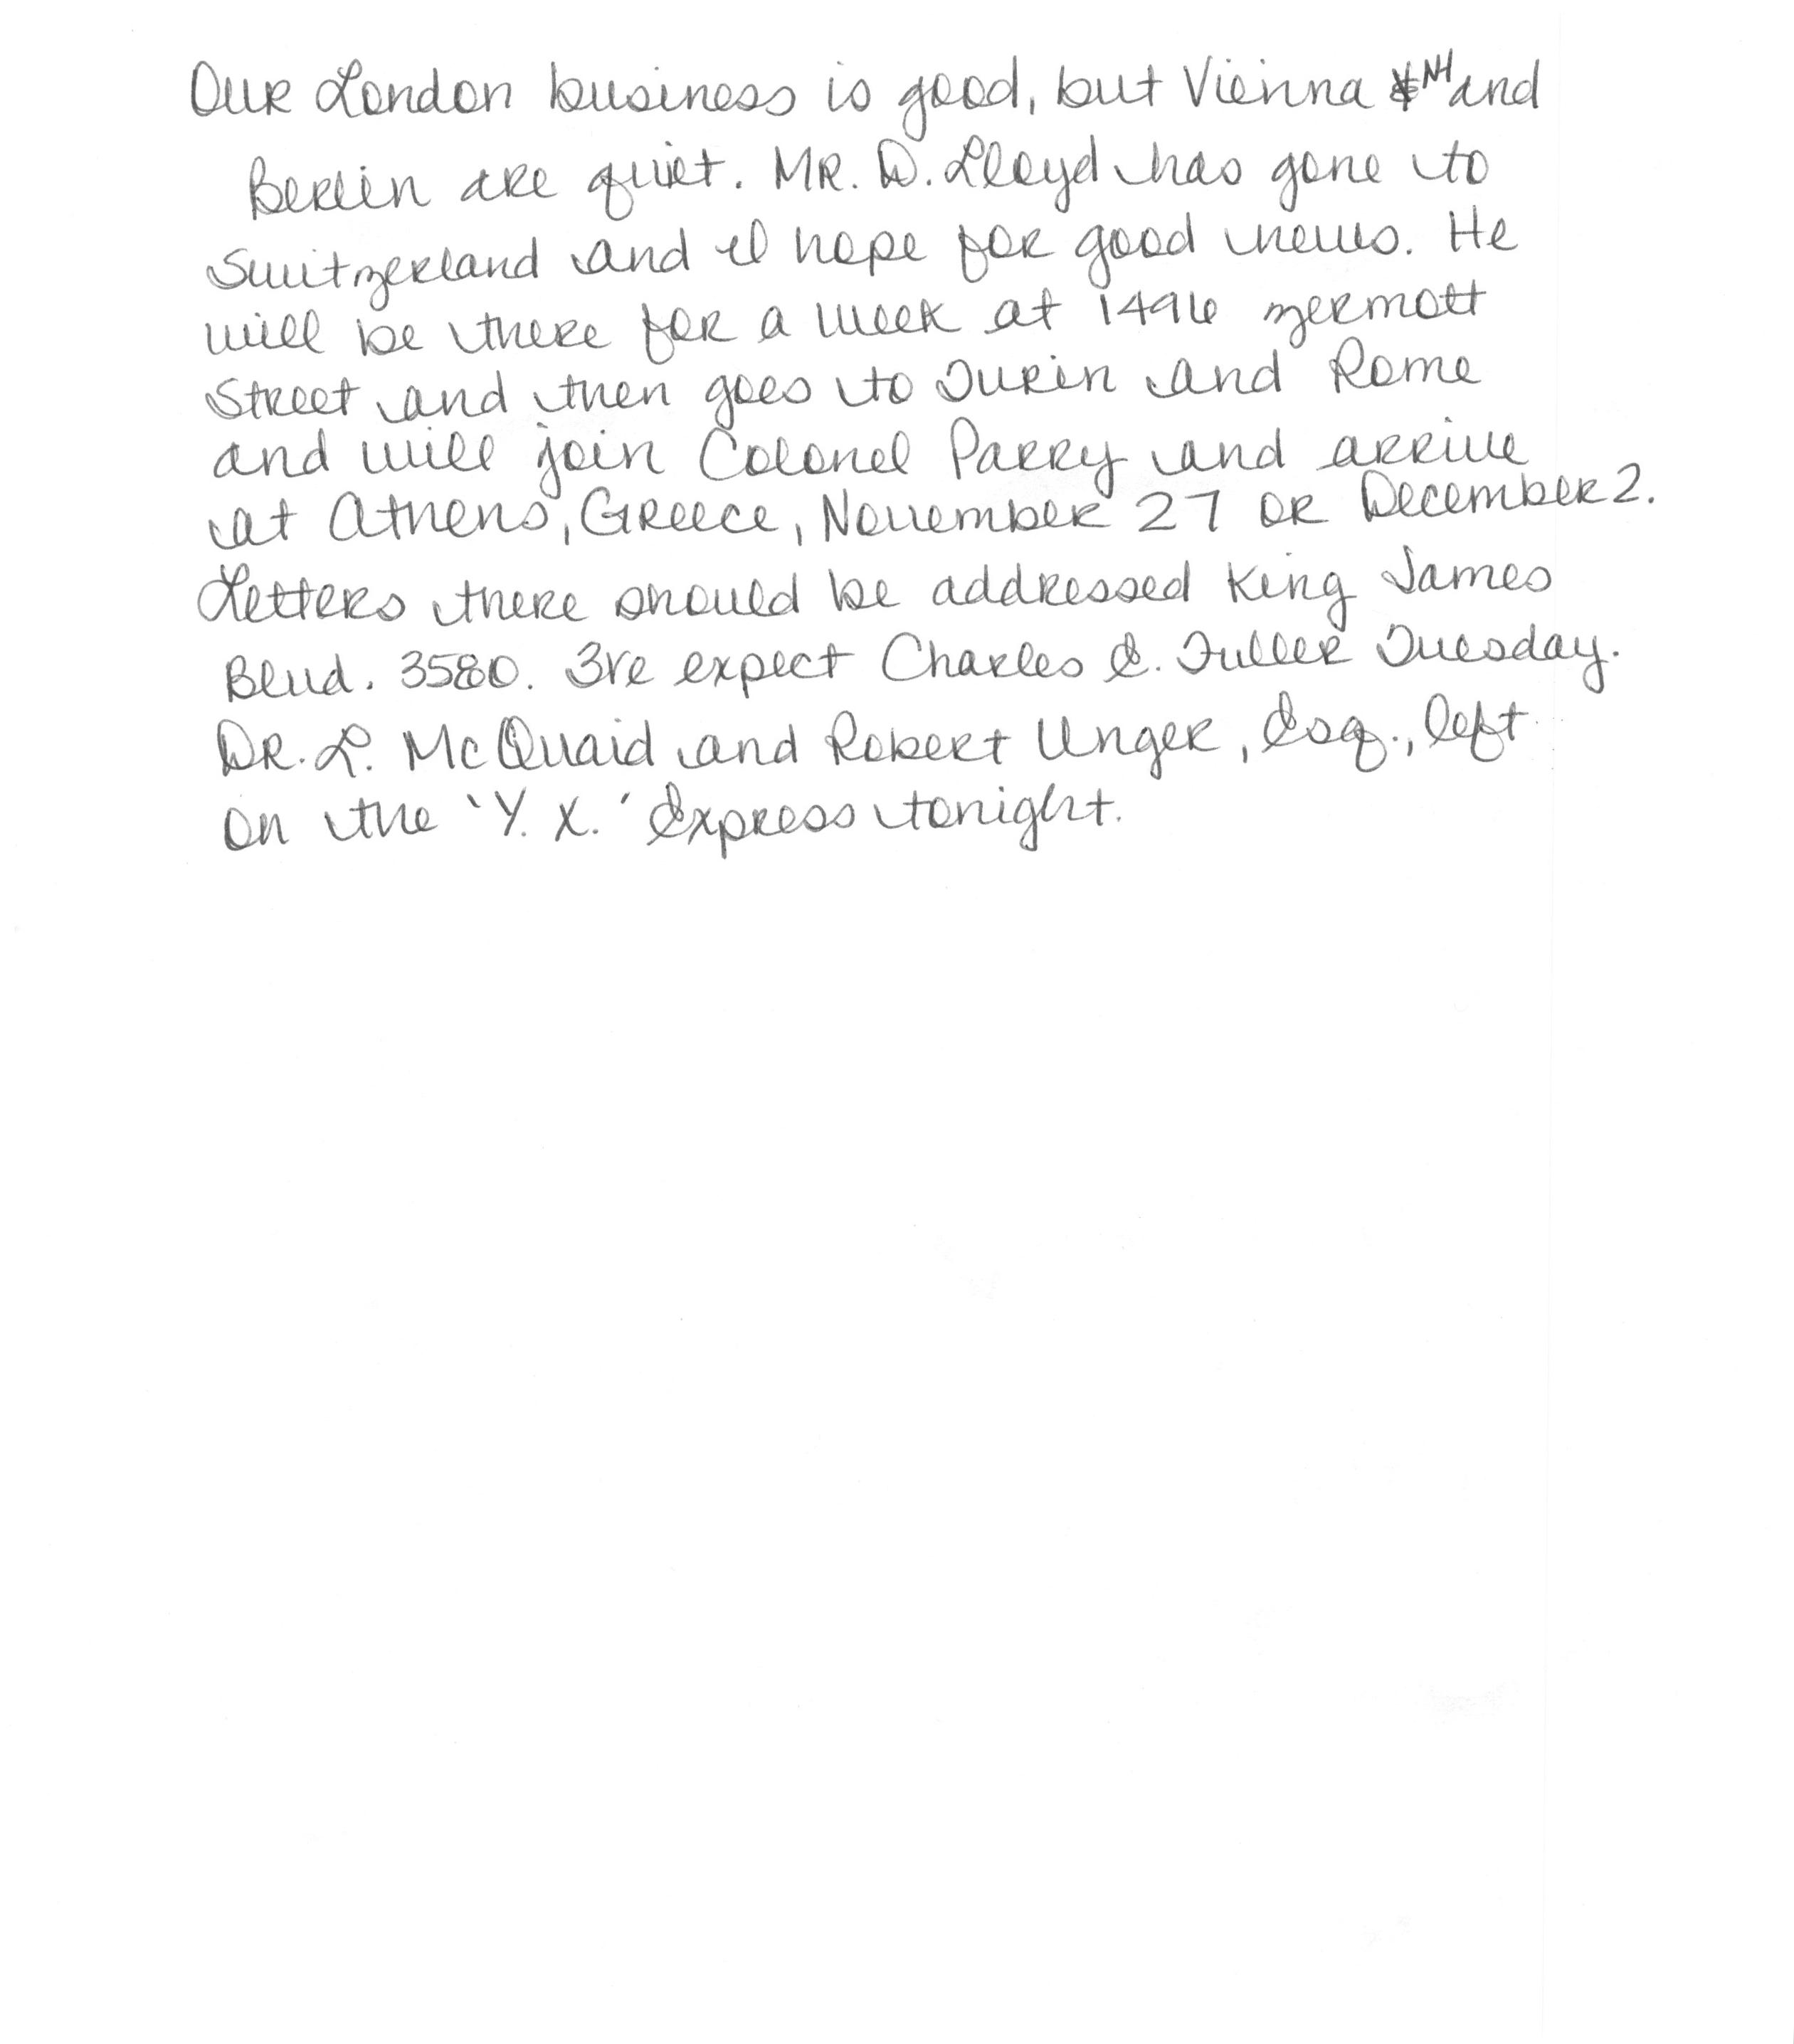 Our London business is good, but Vienna NH and
Berlin are quiet. Mr. D. Lloyd has gone to
Switzerland and I hope for good news. He
will be there for a week at 1496 Zermott
Street and then goes to Turin and Rome
and will join Colonel Parry and arrive
at Athens, Greece, November 27 or December 2.
Letters there should be addressed King James
Blvd. 3580. We expect Charles E. Fuller Tuesday.
Dr. L. McQuaid and Robert Unger, Esq., left
on the 'Y. X.' Express tonight.